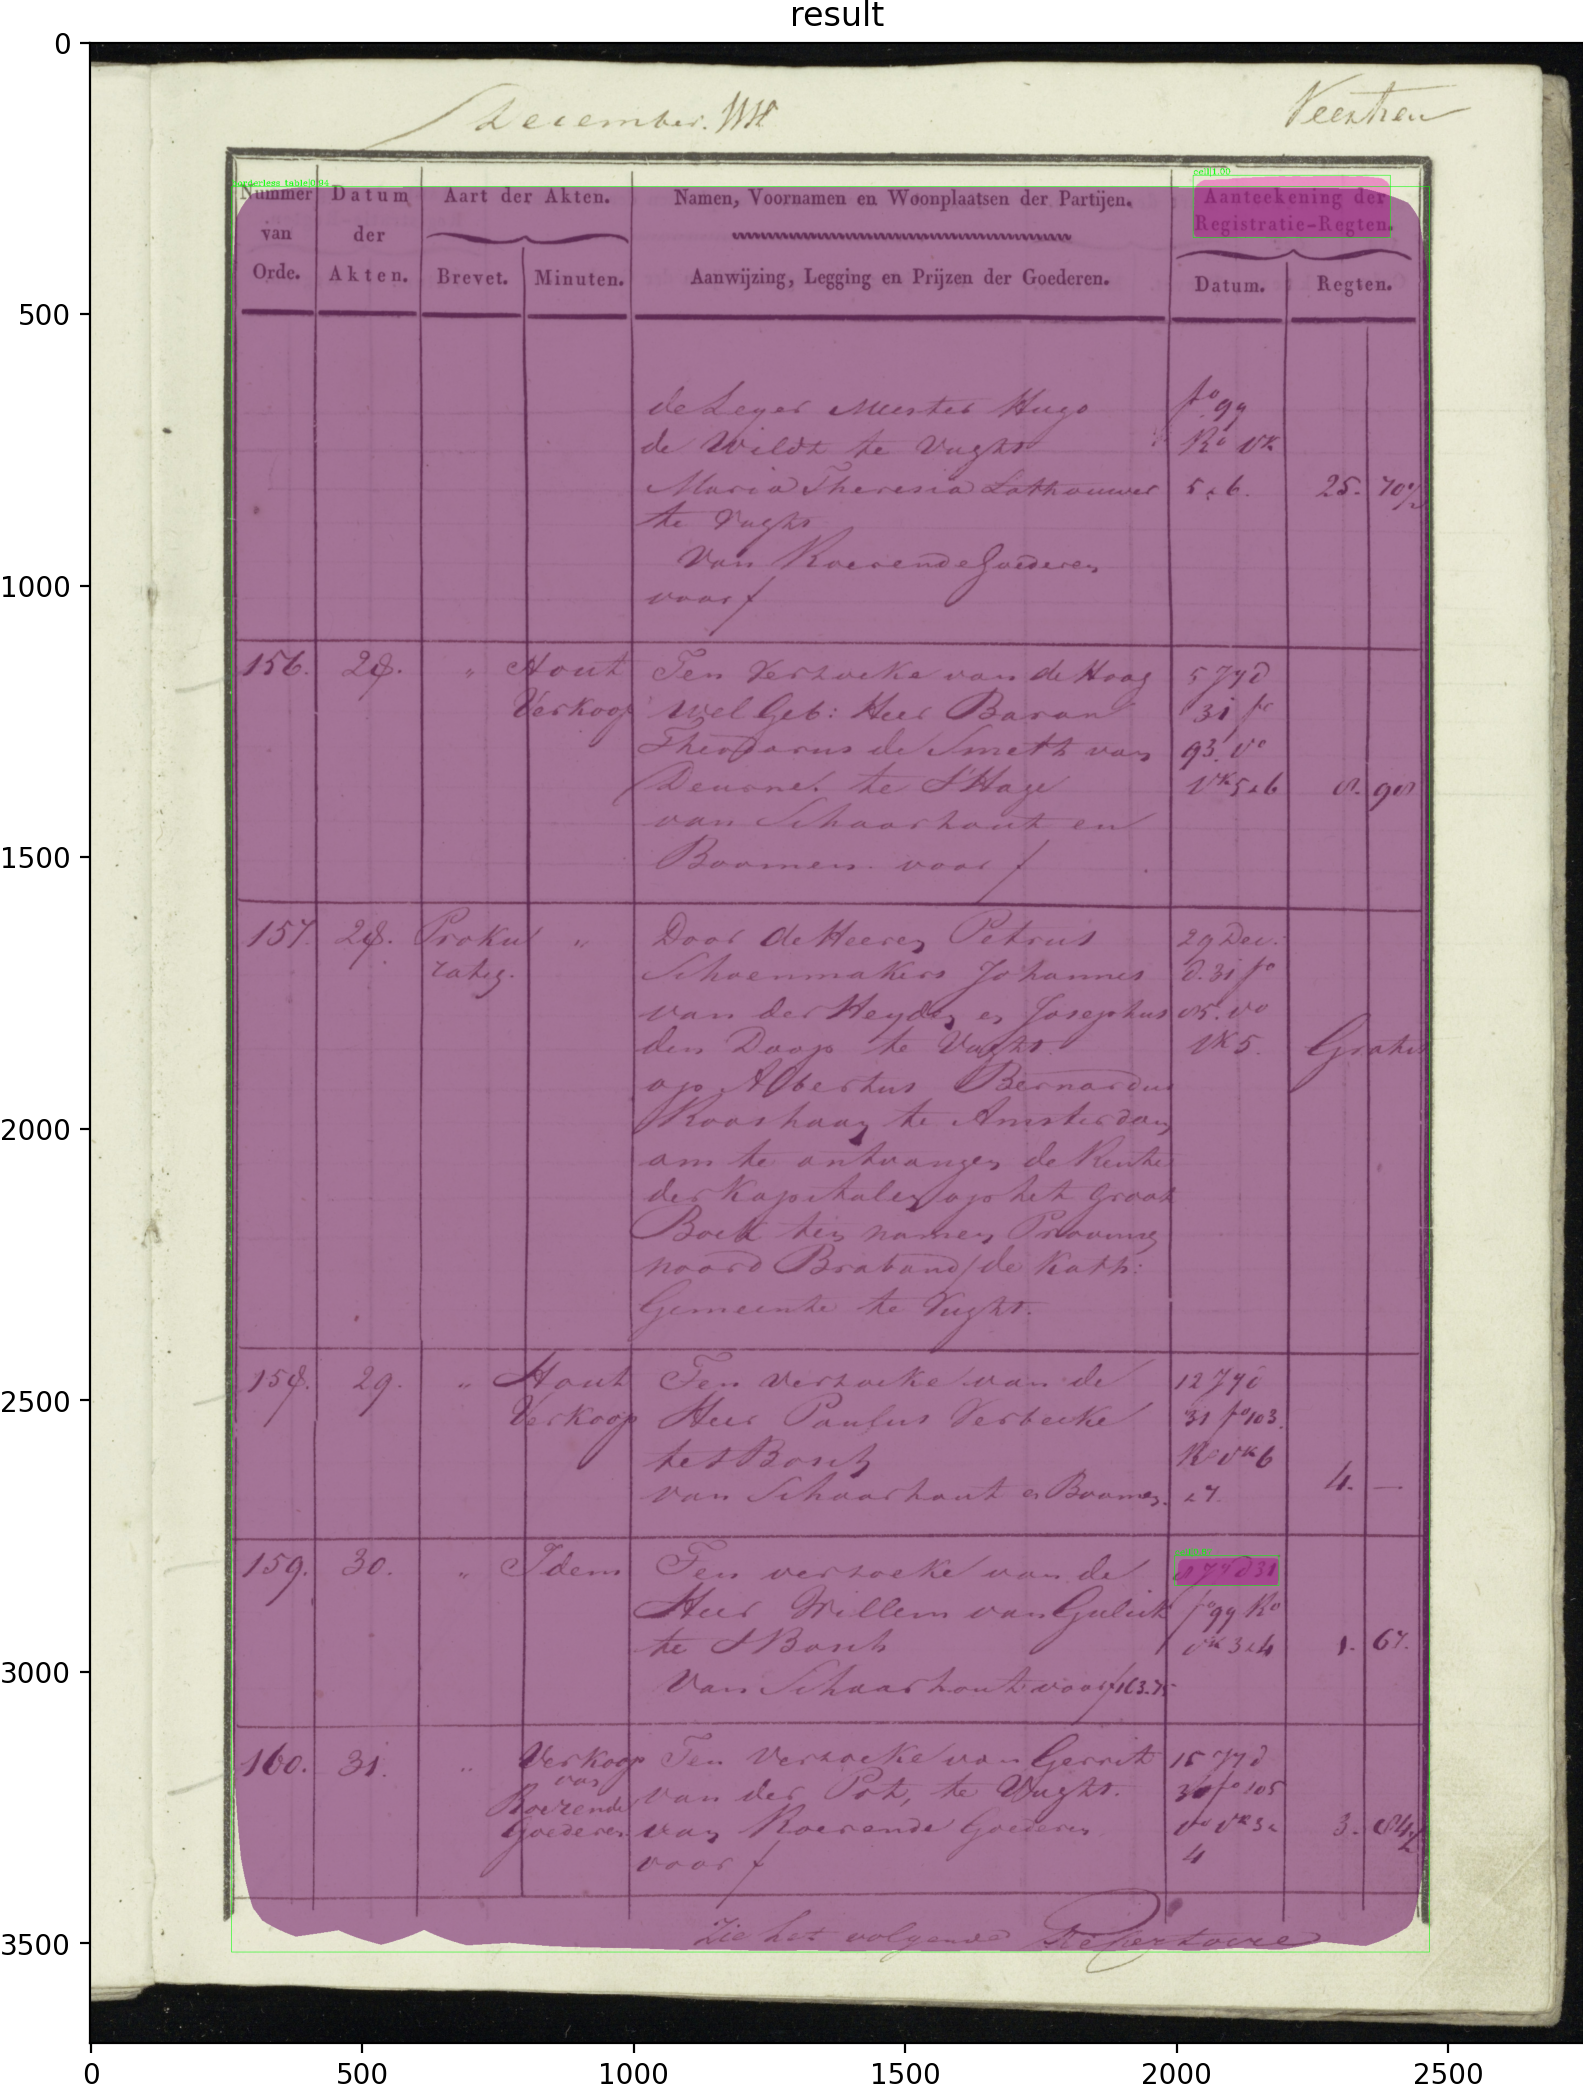 result
December
Nummer van Orde.
Datum der Akten.
Aart der Akten.
Brevet. Minuten.
Namen, Voornamen en Woonplaatsen der Partijen.
Aanwijzing, Legging en Prijzen der Goederen.
Aanteekening der
Registratie-Regten.
Datum. Regten.
de Leger Meester Hugo
de Wildt te Vught
Maria Theresia Lathouwer
te Vught
van Roerende Goederen
voor f
fo 99
Ro vk
5 & 6. 25. 70½
156. 28. " Hout
Verkoop
Ten Verzoeke van de Hoog
wel Geb: Heer Baron
Theodorus de Smeth van
Deurne te S'Hage
van Schaarhout en
Boomen voor f
5 Jy d
31 fo
93. Vo
Vk 5 & 6 8. 98
157. 28. Proku
ratie. "
Door de Heeren Petrus
Schoenmakers Johannes
van der Heyden en Josephus
den Doop te Vught
op Albertus Bernardus
Rooshaan te Amsterdam
om te ontvangen de Rente
der Kapitalen op het Groot
Boek ten namen Provincie
noord Braband / de Kath:
Gemeente te Vught.
29 Dec.
d. 31 fo
85. vo
vk 5. Gratis
158. 29. " Hout
Verkoop
Ten verzoeke van de
Heer Paulus Verbeeke
te s Bosch
van Schaarhout en Boomen.
12 Jy d
31 fo 103.
Ro vk 6
& 7. 4. —
159. 30. " Idem
Ten verzoeke van de
Heer Willem van Gulick
te S Bosch
van Schaarhout voor f 163.75
8 Jy d 31
fo 99 Ro
vk 3 & 4 1. 67.
160. 31. " Verkoop
van
Roerende
Goederen
Ten Verzoeke van Gerrit
van der Pot, te Vught.
van Roerende Goederen
voor f
15 Jy d
31 fo 105
vo vk 3 &
4 3. 84½
Zie het volgende Repertoire
0
500
1000
1500
2000
2500
3000
3500
0 500 1000 1500 2000 2500